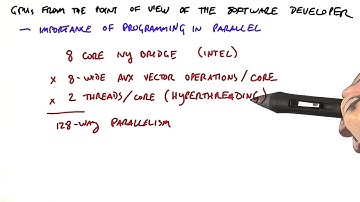 GPUS FROM THE POINT OF VIEW OF THE SOFTWARE DEVELOPER
- IMPORTANCE OF PROGRAMMING IN PARALLEL
8 CORE IVY BRIDGE (INTEL)
x 8-WIDE AVX VECTOR OPERATIONS/CORE
x 2 THREADS/CORE (HYPERTHREADING)
128-WAY PARALLELISM